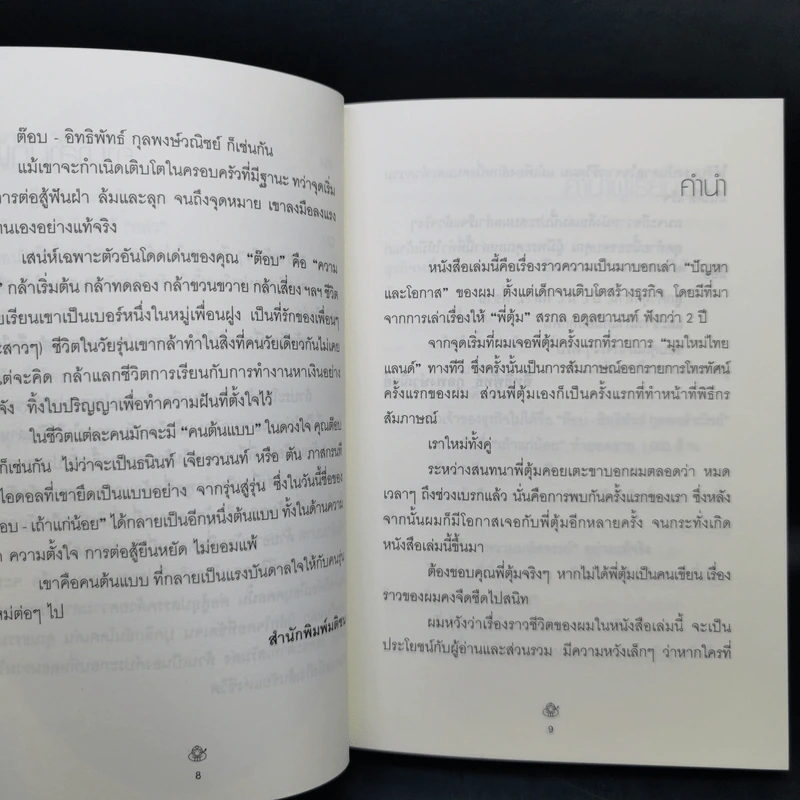 ต๊อบ - อิทธิพัทธ์ กุลพงษ์วณิชย์ ก็เช่นกัน
แม้เขาจะกำเนิดเติบโตในครอบครัวที่มีฐานะ ทว่าจุดเริ่ม
การต่อสู้ฟันฝ่า ล้มและลุก จนถึงจุดหมาย เขาลงมือลงแรง
านเองอย่างแท้จริง
เสน่ห์เฉพาะตัวอันโดดเด่นของคุณ “ต๊อบ” คือ “ความ
” กล้าเริ่มต้น กล้าทดลอง กล้าขวนขวาย กล้าเสี่ยง ฯลฯ ชีวิต
ยเรียนเขาเป็นเบอร์หนึ่งในหมู่เพื่อนฝูง เป็นที่รักของเพื่อนๆ
ะสาวๆ) ชีวิตในวัยรุ่นเขากล้าทำในสิ่งที่คนวัยเดียวกันไม่เคย
แต่จะคิด กล้าแลกชีวิตการเรียนกับการทำงานหาเงินอย่าง
จัง ทิ้งใบปริญญาเพื่อทำความฝันที่ตั้งใจไว้
ในชีวิตแต่ละคนมักจะมี “คนต้นแบบ” ในดวงใจ คุณต๊อบ
ก็เช่นกัน ไม่ว่าจะเป็นธนินท์ เจียรวนนท์ หรือ ตัน ภาสกรนที
ไอดอลที่เขายึดเป็นแบบอย่าง จากรุ่นสู่รุ่น ซึ่งในวันนี้ชื่อของ
อบ - เถ้าแก่น้อย” ได้กลายเป็นอีกหนึ่งต้นแบบ ทั้งในด้านความ
ด ความตั้งใจ การต่อสู้ยืนหยัด ไม่ยอมแพ้
เขาคือคนต้นแบบ ที่กลายเป็นแรงบันดาลใจให้กับคนรุน
หม่ต่อๆ ไป
สำนักพิมพ์มติชน
8
คำนำ
หนังสือเล่มนี้คือเรื่องราวความเป็นมาบอกเล่า “ปัญหา
และโอกาส” ของผม ตั้งแต่เด็กจนเติบโตสร้างธุรกิจ โดยมีที่มา
จากการเล่าเรื่องให้ “พี่ตุ้ม” สรกล อดุลยานนท์ ฟังกว่า 2 ปี
จากจุดเริ่มที่ผมเจอพี่ตุ้มครั้งแรกที่รายการ “มุมใหม่ไทย
แลนด์” ทางทีวี ซึ่งครั้งนั้นเป็นการสัมภาษณ์ออกรายการโทรทัศน์
ครั้งแรกของผม ส่วนพี่ตุ้มเองก็เป็นครั้งแรกที่ทำหน้าที่พิธีกร
สัมภาษณ์
เราใหม่ทั้งคู่
ระหว่างสนทนาพี่ตุ้มคอยเตะขาบอกผมตลอดว่า หมด
เวลาๆ ถึงช่วงเบรกแล้ว นั่นคือการพบกันครั้งแรกของเรา ซึ่งหลัง
จากนั้นผมก็มีโอกาสเจอกับพี่ตุ้มอีกหลายครั้ง จนกระทั่งเกิด
หนังสือเล่มนี้ขึ้นมา
ต้องขอบคุณพี่ตุ้มจริงๆ หากไม่ได้พี่ตุ้มเป็นคนเขียน เรื่อง
ราวของผมคงจืดชืดไปสนิท
ผมหวังว่าเรื่องราวชีวิตของผมในหนังสือเล่มนี้ จะเป็น
ประโยชน์กับผู้อ่านและส่วนรวม มีความหวังเล็กๆ ว่าหากใครที่
9